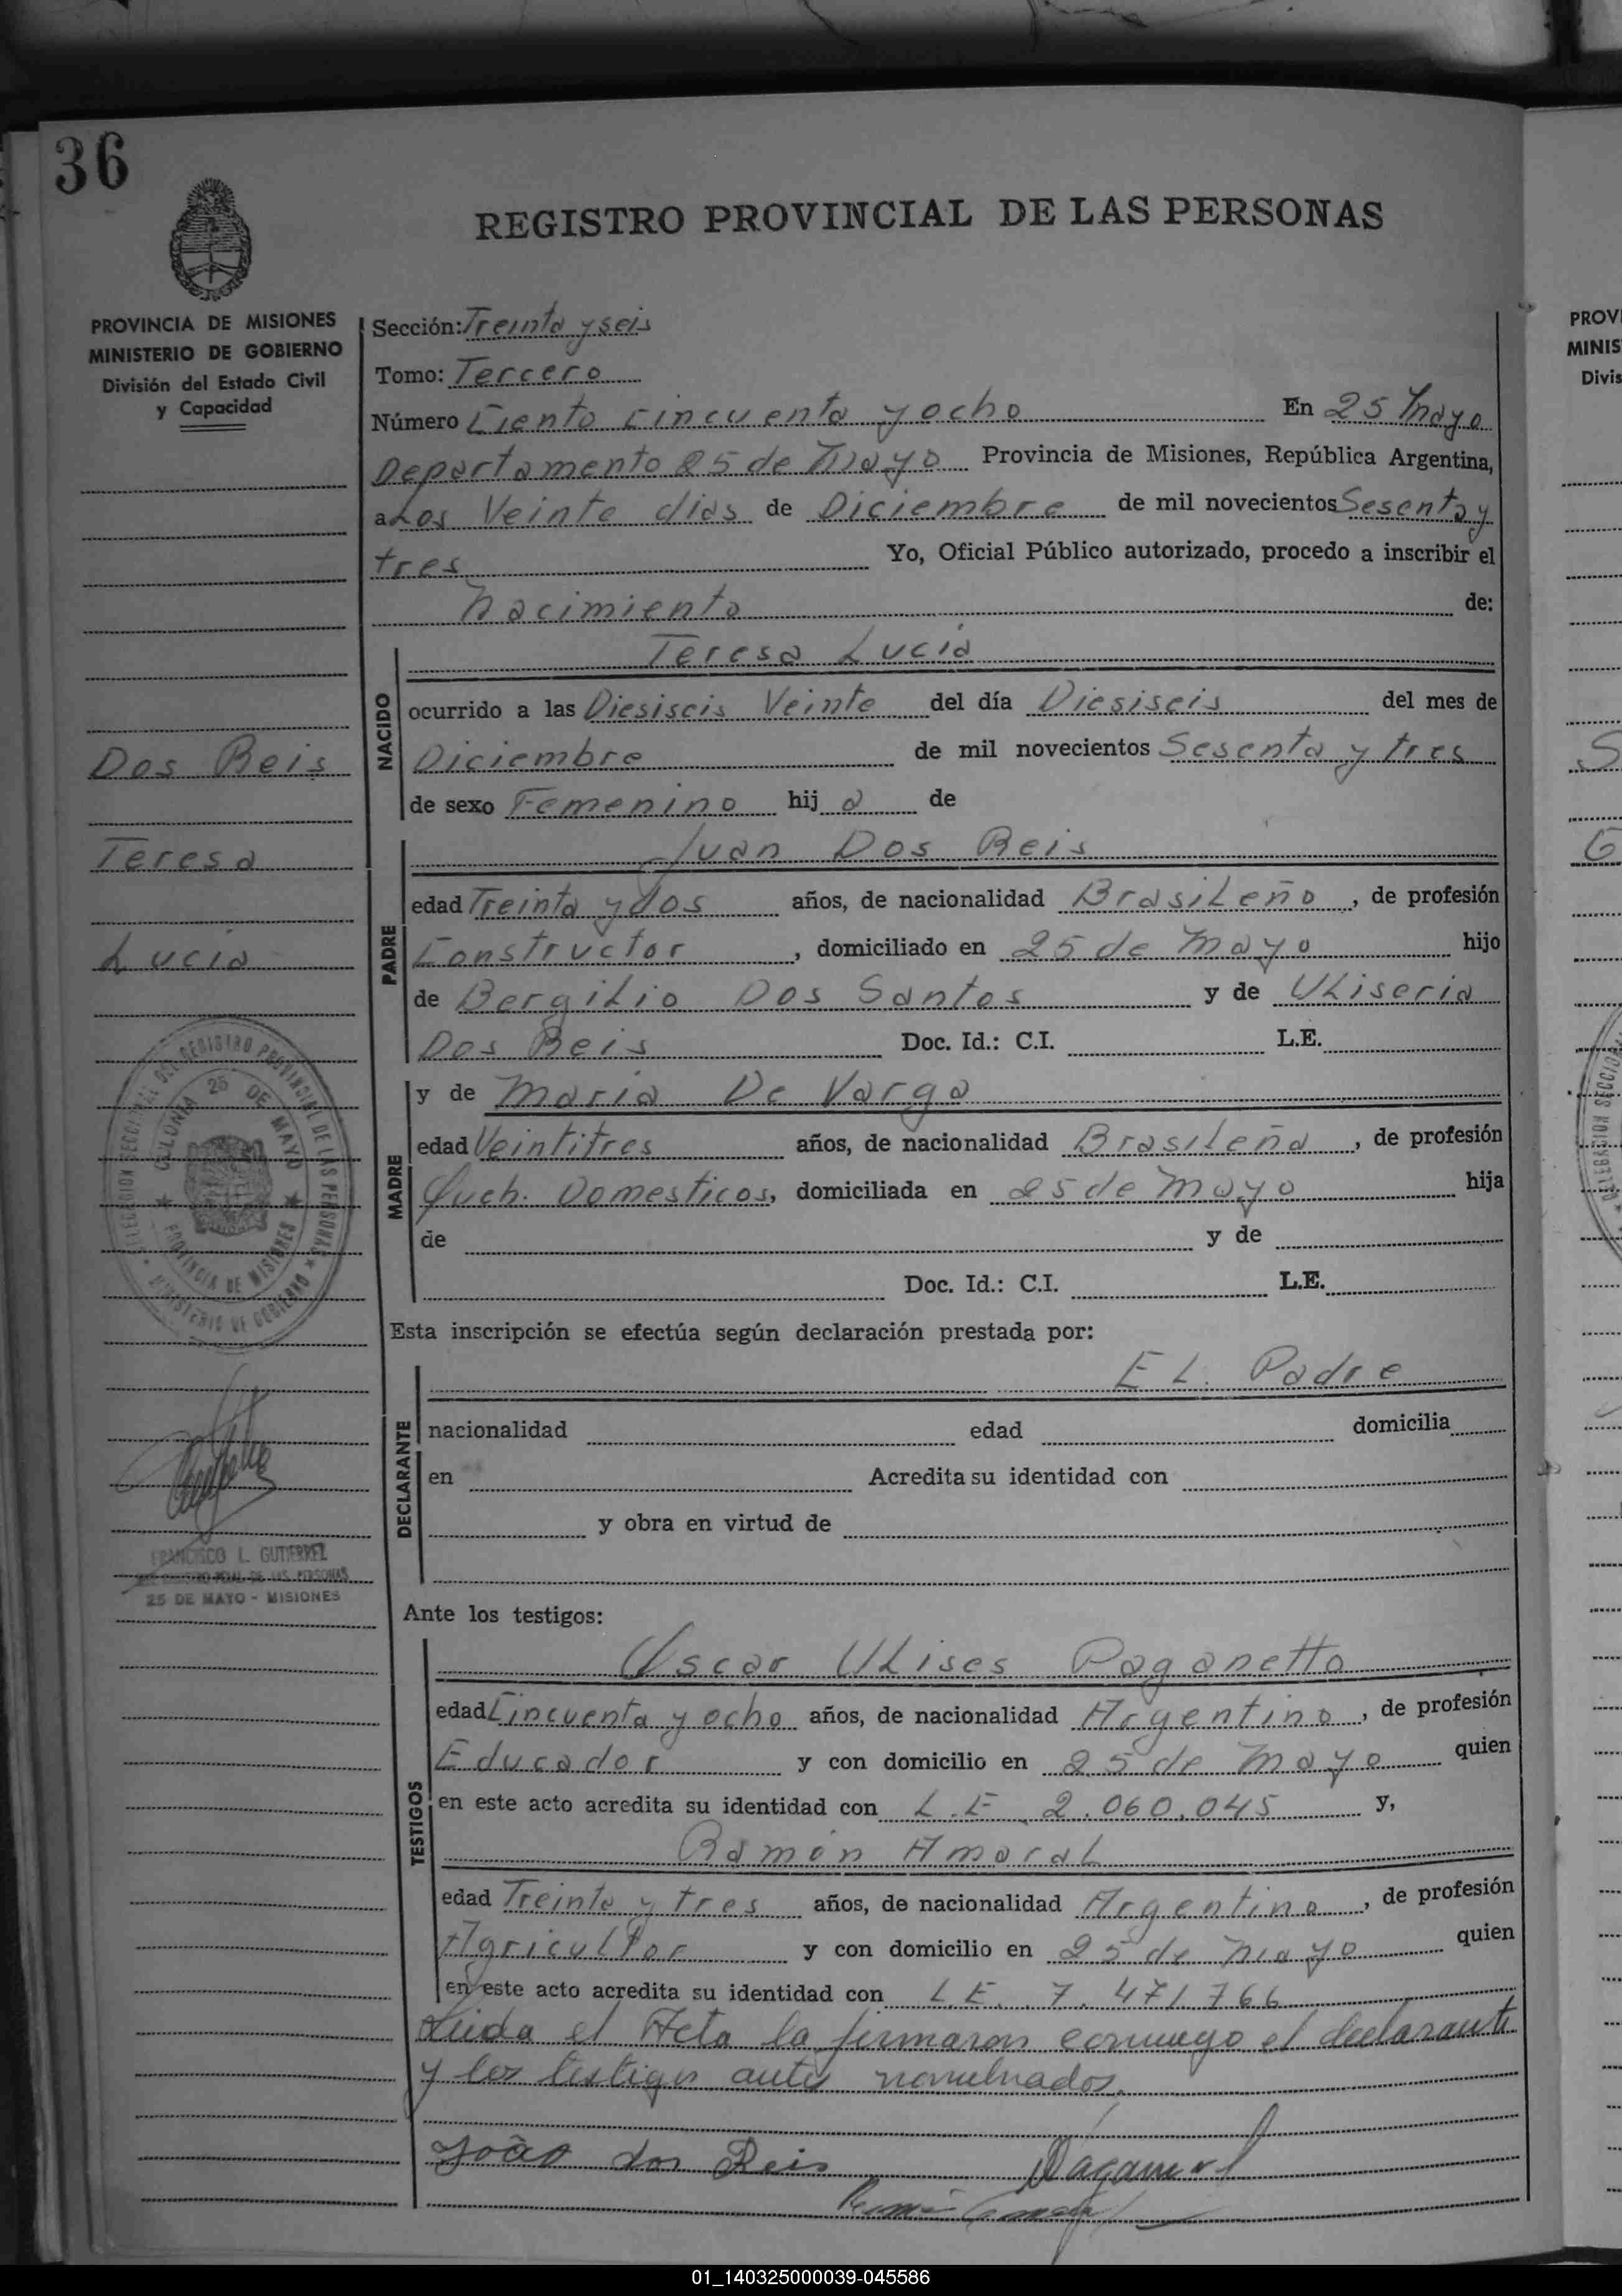 36
REGISTRO PROVINCIAL DE LAS PERSONAS
PROVINCIA DE MISIONES
MINISTERIO DE GOBIERNO
División del Estado Civil
y Capacidad
Sección: Treinta y seis
Tomo: Tercero
Número Ciento cincuenta y ocho En 25 Mayo
Departamento 25 de Mayo Provincia de Misiones, República Argentina,
a Los Veinte dias de Diciembre de mil novecientos Sesenta y
tres Yo, Oficial Público autorizado, procedo a inscribir el
Nacimiento de:
NACIDO
Teresa Lucia
ocurrido a las Diesiseis Veinte del día Diesiseis del mes de
Diciembre de mil novecientos Sesenta y tres
de sexo Femenino hija de
Dos Reis
Teresa
Lucia
PADRE
Juan Dos Reis
edad Treinta y dos años, de nacionalidad Brasileño, de profesión
Constructor, domiciliado en 25 de Mayo hijo
de Bergilio Dos Santos y de Uliseria
Dos Reis Doc. Id.: C.I. L.E.
MADRE
y de Maria De Varga
edad Veintitres años, de nacionalidad Brasileña, de profesión
Queh. Domesticos, domiciliada en 25 de Mayo hija
de y de
Doc. Id.: C.I. L.E.
DELEGACION SECCIONAL DEL REGISTRO PROVINCIAL DE LAS PERSONAS
COLONIA 25 DE MAYO
PROVINCIA DE MISIONES
MINISTERIO DE GOBIERNO
Esta inscripción se efectúa según declaración prestada por:
DECLARANTE
El Padre
nacionalidad edad domicilia
en Acredita su identidad con
y obra en virtud de
FRANCISCO L. GUTIERREZ
25 DE MAYO - MISIONES
Ante los testigos:
TESTIGOS
Oscar Ulises Paganetto
edad Cincuenta y ocho años, de nacionalidad Argentino, de profesión
Educador y con domicilio en 25 de Mayo quien
en este acto acredita su identidad con L.E 2.060.045 y,
Ramón Amaral
edad Treinta y tres años, de nacionalidad Argentino, de profesión
Agricultor y con domicilio en 25 de Mayo quien
en este acto acredita su identidad con L.E. 7.471.766
Leida el Acta la firmaron conmigo el declarante
y los testigos antes nombrados.
João dos Reis
PROV
MINIS
Divis
01_140325000039-045586